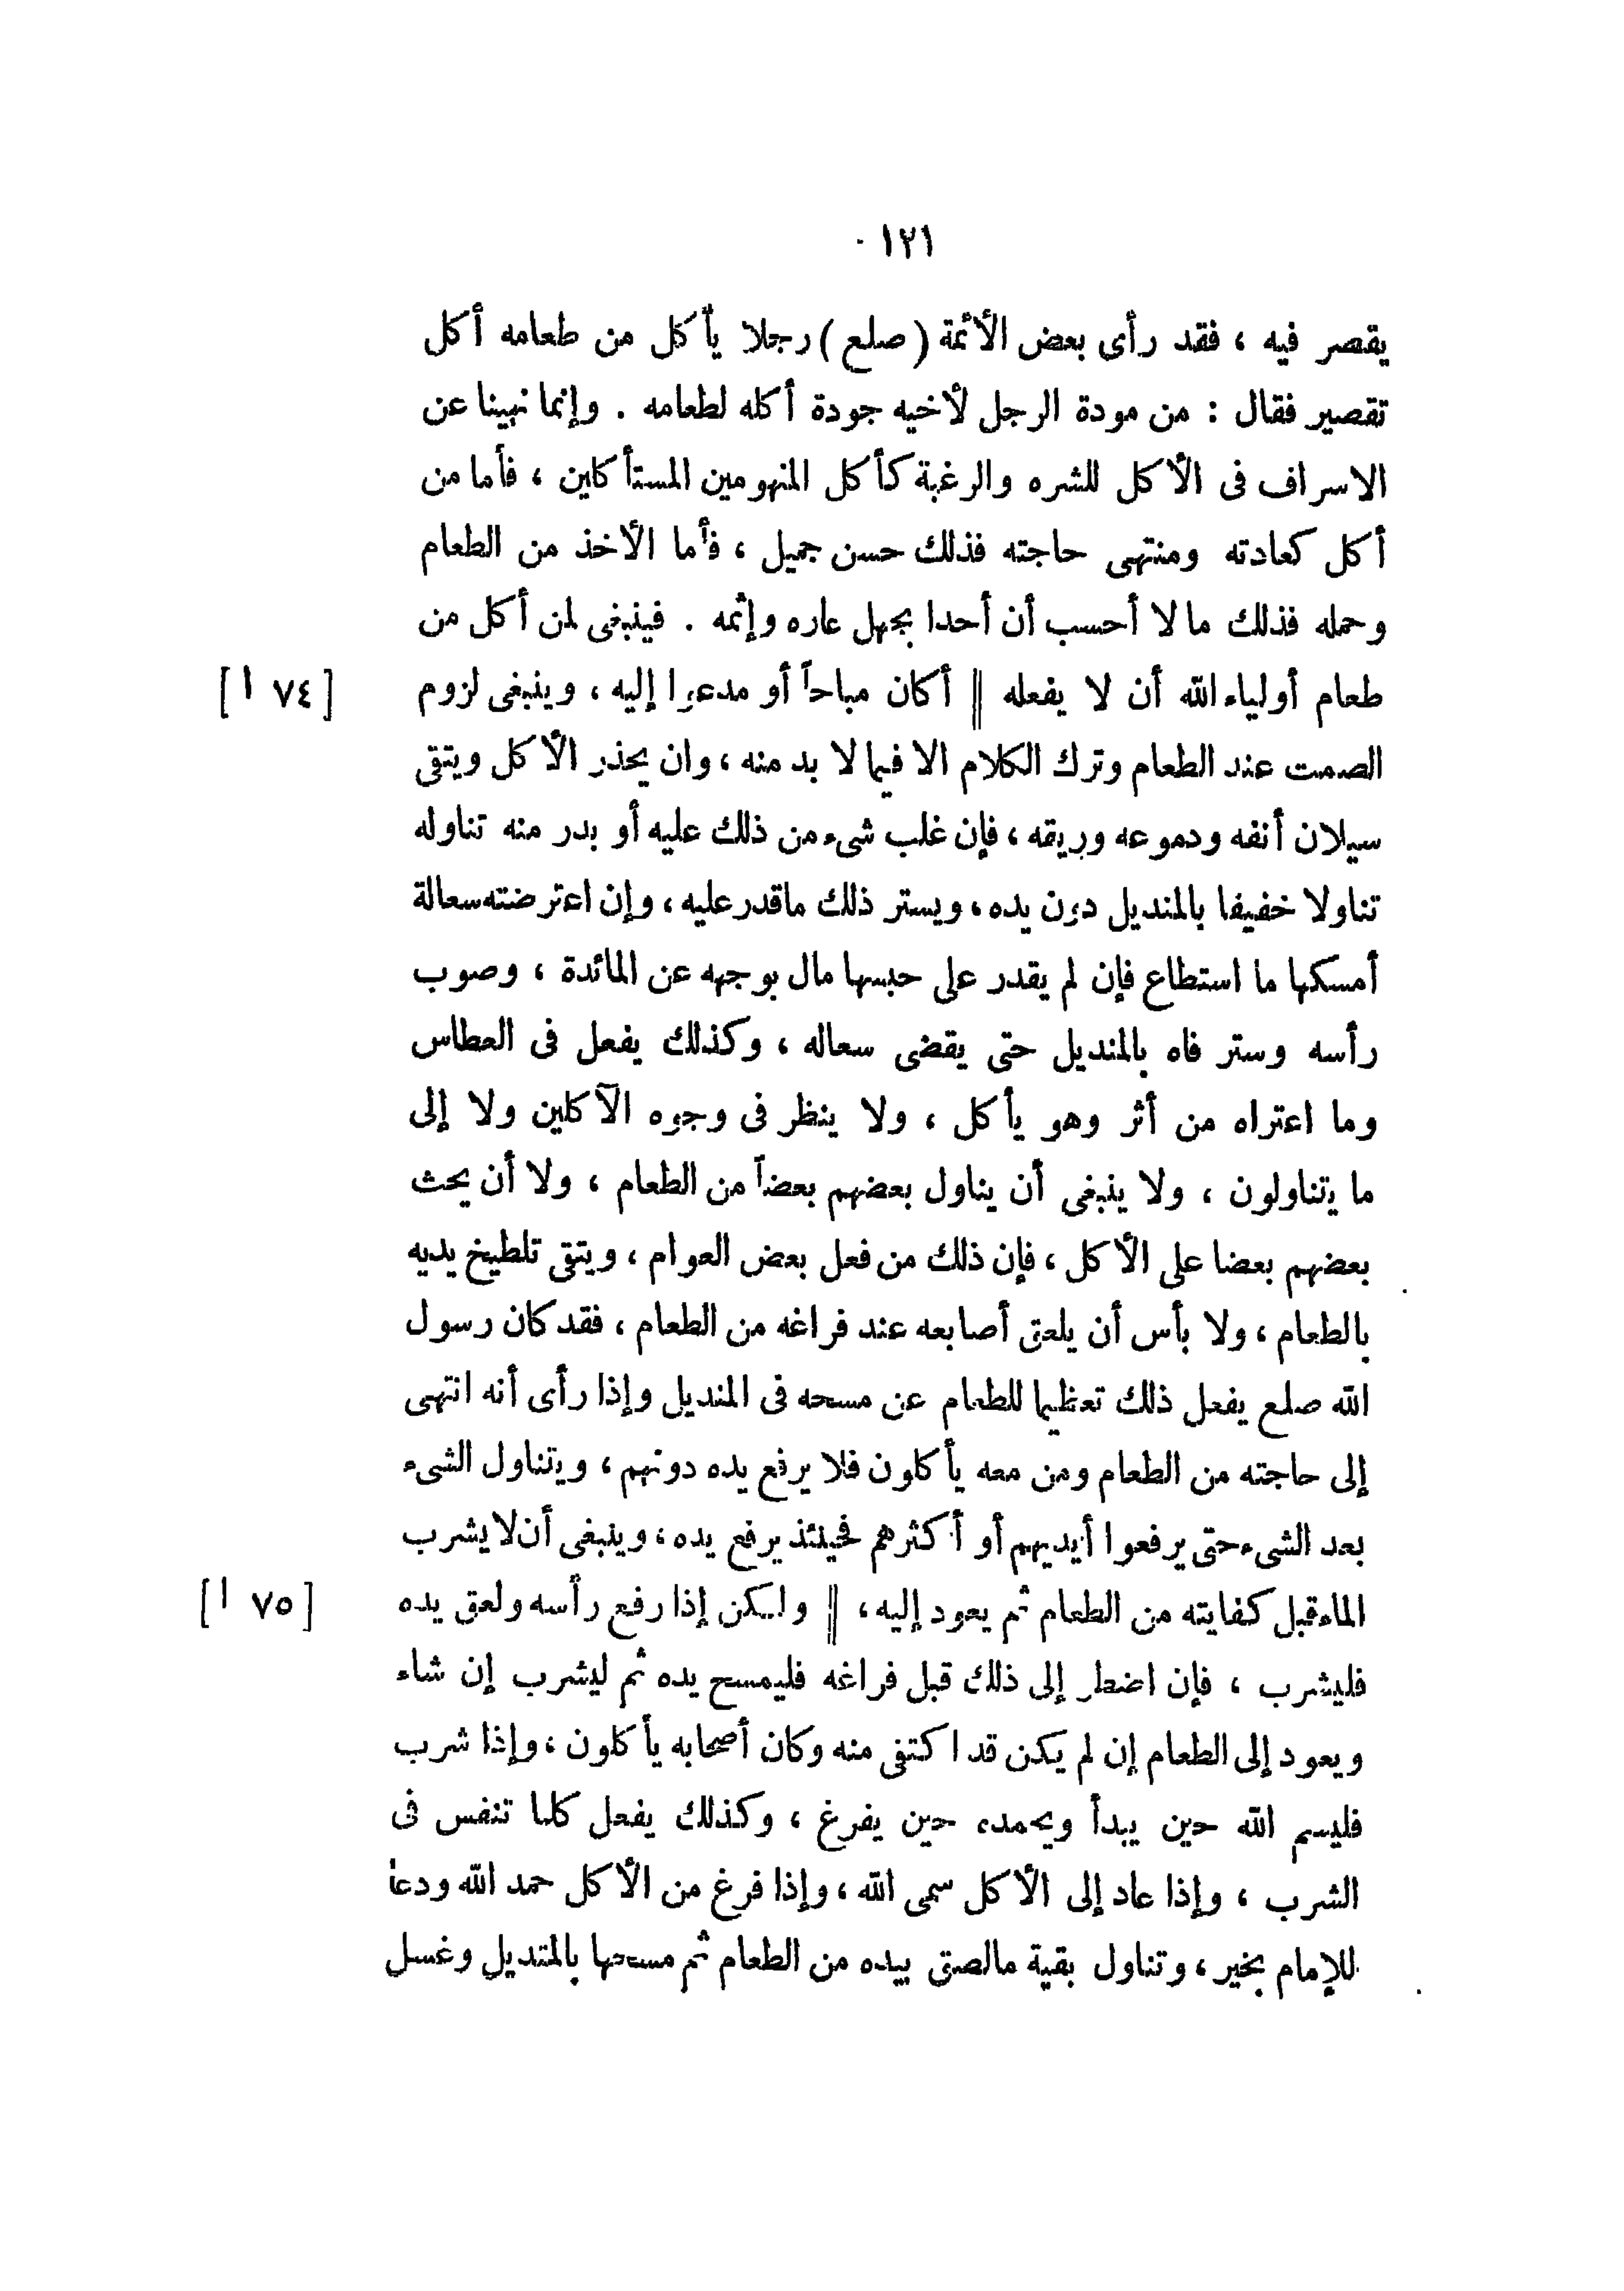 ١٢١
يقصر فيه ، فقد رأى بعض الأئمة ( صلع ) رجلا يأكل من طعامه أكل
تقصير فقال : من مودة الرجل لأخيه جودة أكله لطعامه . وإنما نهينا عن
الاسراف فى الأكل للشره والرغبة كأكل المنهومين المستأكلين ، فأما من
أكل كعادته ومنتهى حاجته فذلك حسن جميل ، فأما الأخذ من الطعام
وحمله فذلك مالا أحسب أن أحدا يجهل عاره وإثمه . فينبغى لمن أكل من
طعام أولياء الله أن لا يفعله || أكان مباحاً أو مدعوا إليه ، وينبغى لزوم [ ٧٤ ا ]
الصمت عند الطعام وترك الكلام الا فيما لا بد منه ، وان يحذر الأكل ويتقى
سيلان أنفه ودموعه وريقه ، فإن غلب شىء من ذلك عليه أو بدر منه تناوله
تناولا خفيفا بالمنديل دون يده ، ويستر ذلك ماقدر عليه ، وإن اعترضته سعالة
أمسكها ما استطاع فإن لم يقدر على حبسها مال بوجهه عن المائدة ، وصوب
رأسه وستر فاه بالمنديل حتى يقضى سعاله ، وكذلك يفعل فى العطاس
وما اعتراه من أثر وهو يأكل ، ولا ينظر فى وجوه الآكلين ولا إلى
ما يتناولون ، ولا ينبغى أن يناول بعضهم بعضاً من الطعام ، ولا أن يحث
بعضهم بعضا على الأكل ، فإن ذلك من فعل بعض العوام ، ويتقى تلطيخ يديه
بالطعام ، ولا بأس أن يلعق أصابعه عند فراغه من الطعام ، فقد كان رسول
الله صلع يفعل ذلك تعظيما للطعام عن مسحه فى المنديل وإذا رأى أنه انتهى
إلى حاجته من الطعام ومن معه يأكلون فلا يرفع يده دونهم ، ويتناول الشىء
بعد الشىء حتى يرفعوا أيديهم أو أكثرهم فحينئذ يرفع يده ، وينبغى أن لا يشرب
الماء قبل كفايته من الطعام ثم يعود إليه ، || ولكن إذا رفع رأسه ولعق يده [ ٧٥ ا ]
فليشرب ، فإن اضطر إلى ذلك قبل فراغه فليمسح يده ثم ليشرب إن شاء
ويعود إلى الطعام إن لم يكن قد اكتفى منه وكان أصحابه يأكلون ، وإذا شرب
فليسم الله حين يبدأ ويحمده حين يفرغ ، وكذلك يفعل كلما تنفس فى
الشرب ، وإذا عاد إلى الأكل سمى الله ، وإذا فرغ من الأكل حمد الله ودعا
للإمام بخير ، وتناول بقية مالصق بيده من الطعام ثم مسحها بالمنديل وغسل